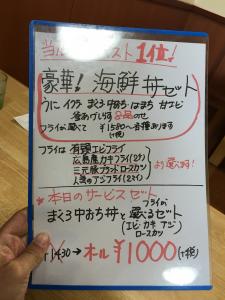 当店 スト1位!
豪華!海鮮丼セット
うに イクラ まぐろ中おち はまち 甘エビ
釜あげしらす 8品のせ
フライが選べて ¥1580〜各種あります
(+税)
フライは 有頭エビフライ
広島産カキフライ(2ケ)
三元豚ブランドロースカツ
人気のアジフライ(2ケ)
より選べます!
*本日のサービスセット
フライが
まぐろ中おち丼と選べるセット
(エビ・カキ アジ)
ロースカツ
オール¥1000(+税)